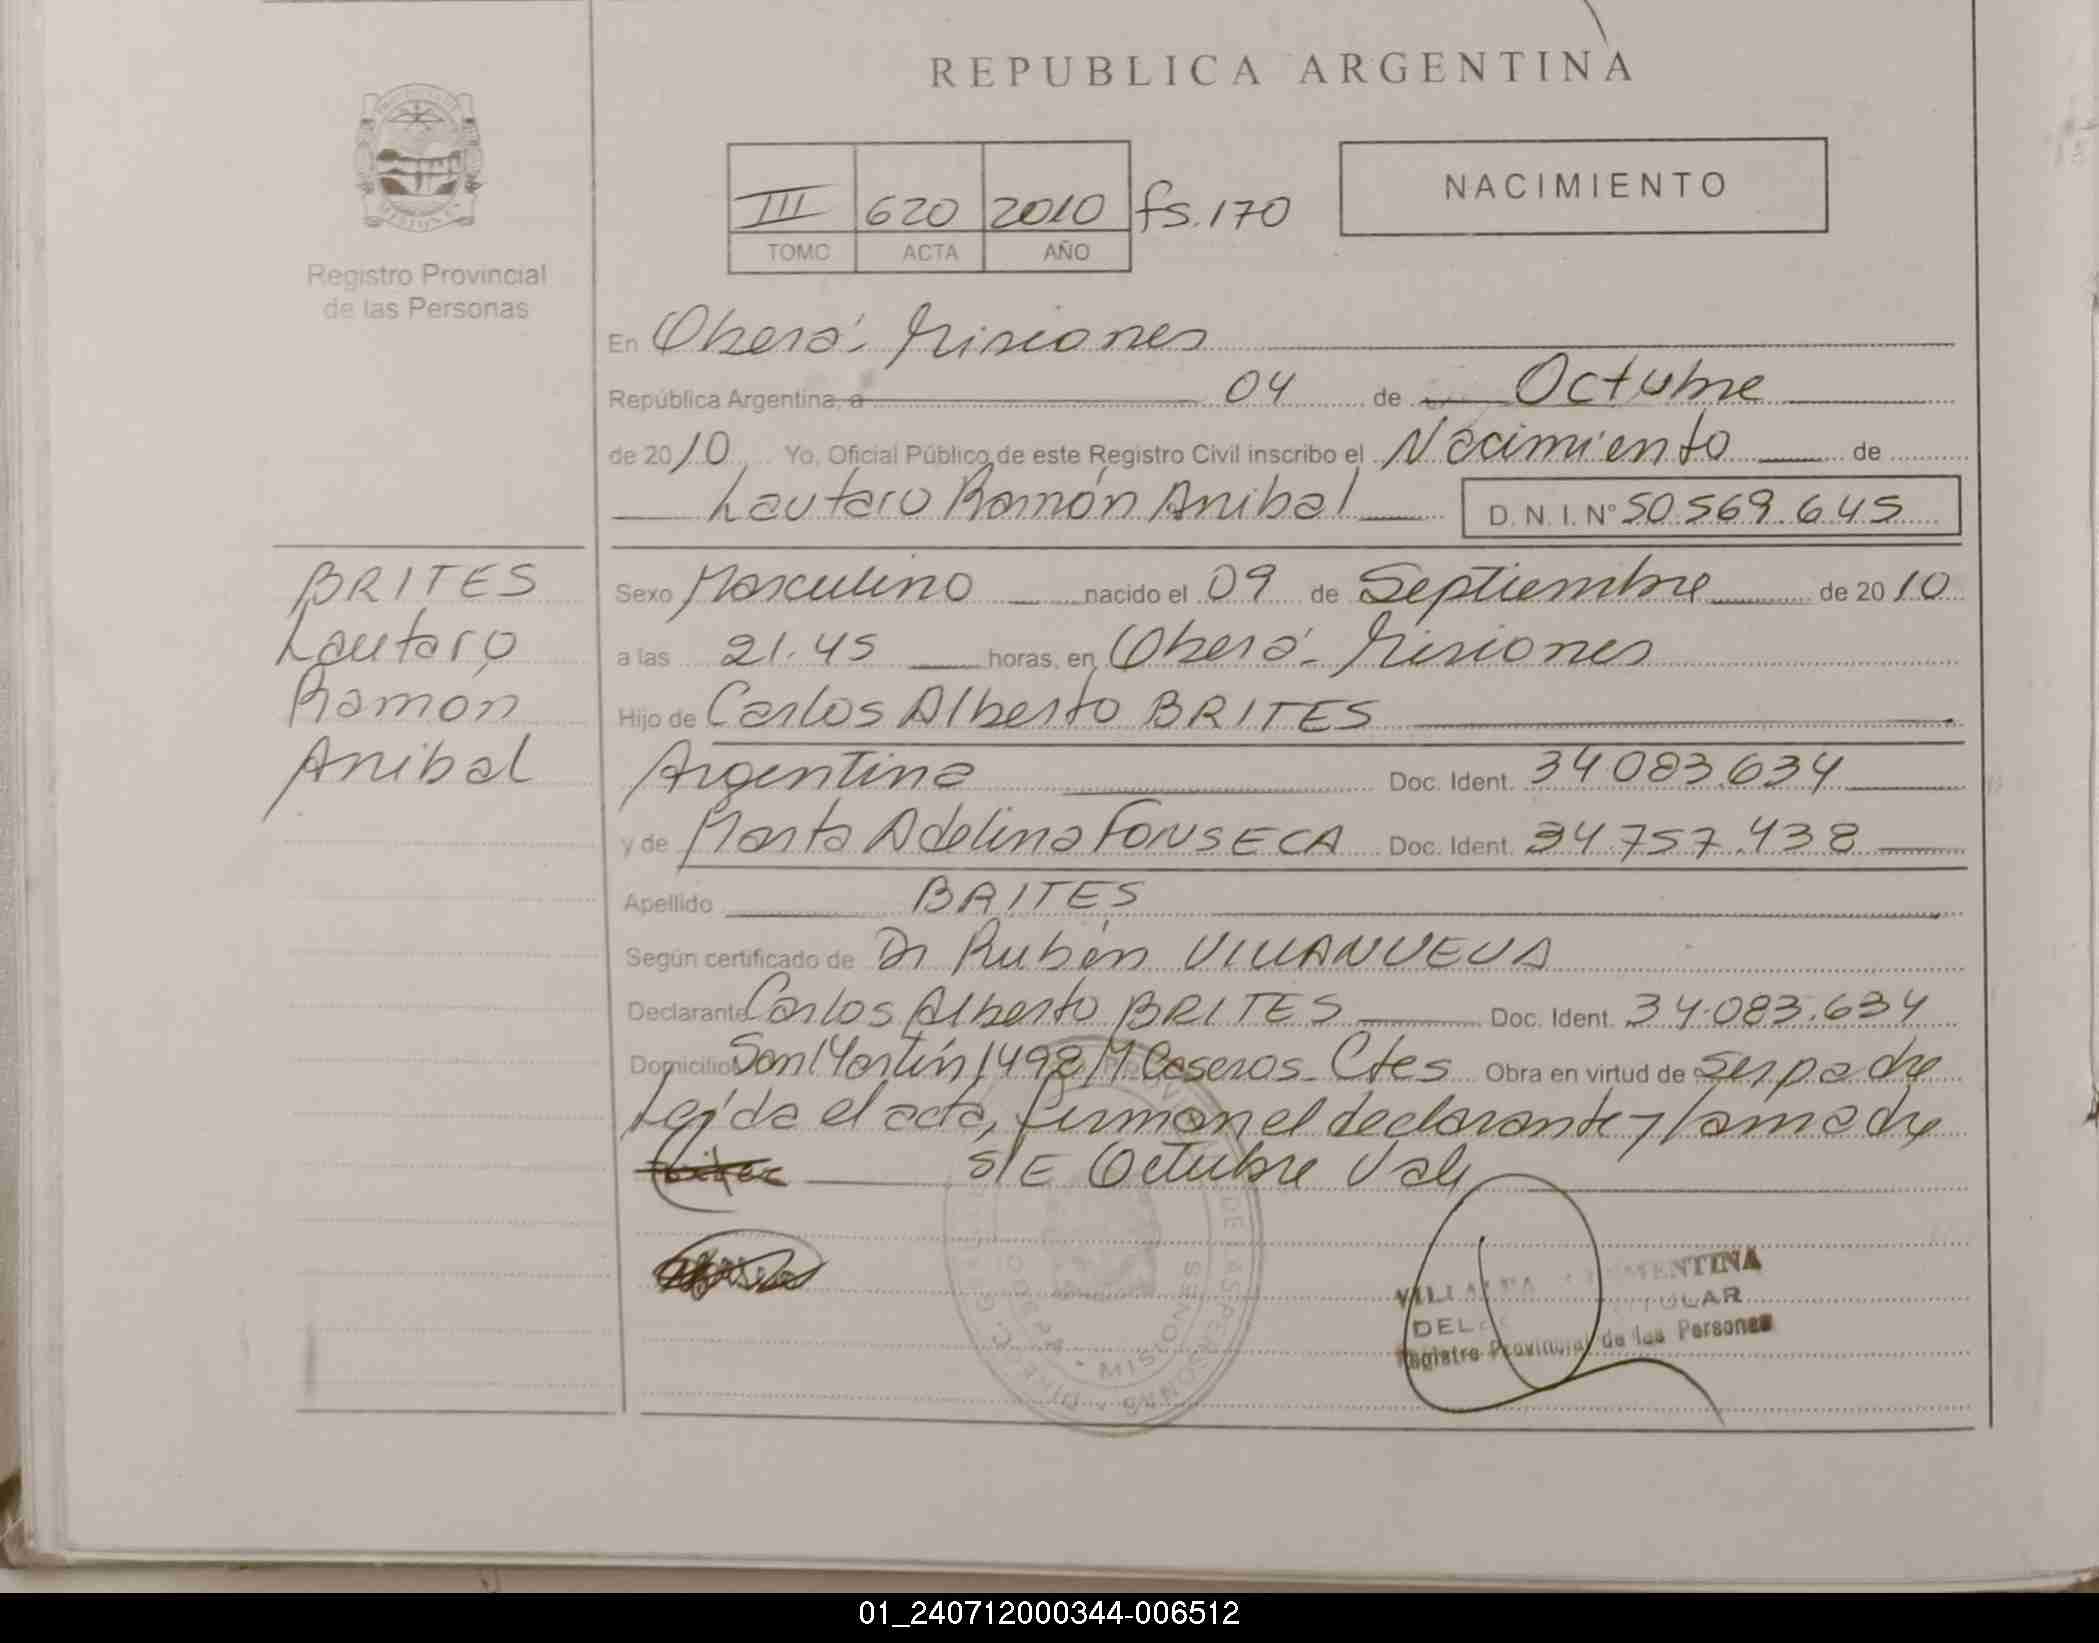 REPUBLICA ARGENTINA
NACIMIENTO
III 620 2010 fs. 170
TOMO ACTA AÑO
Registro Provincial
de las Personas
En Oberá - Misiones
República Argentina, a 04 de Octubre
de 2010 Yo, Oficial Público de este Registro Civil inscribo el Nacimiento de
Lautaro Ramón Anibal D.N.I. N° 50.569.645
BRITES
Lautaro
Ramón
Anibal
Sexo Masculino nacido el 09 de Septiembre de 2010
a las 21.45 horas, en Oberá - Misiones
Hijo de Carlos Alberto BRITES
Argentina Doc. Ident. 34.083.634
y de Marta Adelina FONSECA Doc. Ident. 34.757.438
Apellido BRITES
Según certificado de Dr Rubén VILLANUEVA
Declarante Carlos Alberto BRITES Doc. Ident. 34.083.634
Domicilio San Martín 1498 M. Caseros - Ctes Obra en virtud de ser padre
Leída el acta, firman el declarante y la madre
S/E Octubre Vale
DE LAS PERSONAS
MISIONES
Registro Provincial de las Personas
01_240712000344-006512